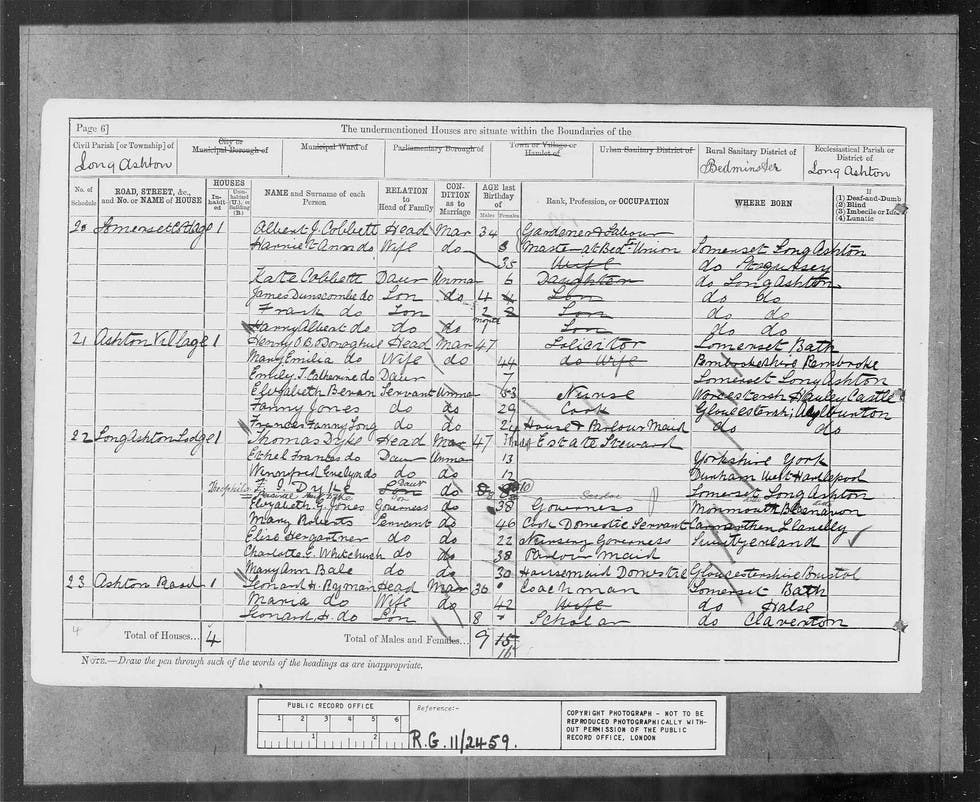 Page 6]
The undermentioned Houses are situate within the Boundaries of the
Civil Parish [or Township] of
City or Municipal Borough of
Municipal Ward of
Parliamentary Borough of
Town or Village or Hamlet of
Urban Sanitary District of
Rural Sanitary District of
Ecclesiastical Parish or District of
Long Ashton
Bedminster
Long Ashton
No. of Schedule
ROAD, STREET, &c., and No. or NAME of HOUSE
HOUSES
In-habit-ed
Unin-habited (U.), or Building (B.)
NAME and Surname of each Person
RELATION to Head of Family
CON-DITION as to Marriage
AGE last Birthday of
Males
Females
Rank, Profession, or OCCUPATION
WHERE BORN
If
(1) Deaf-and-Dumb
(2) Blind
(3) Imbecile or Idiot
(4) Lunatic
20 Somerset Cottage 1 Albert J. Cobbett Head Mar 34 Gardener &
Harriet Anna do Wife do 8 at Bed Union Somerset Long Ashton
35 Wife do Stogursey
Kate Cobbett Daur Unmar 6 Daughton do Long Ashton
James Dunscombe do Son do 4 Son do do
Frank do Son 2 Son do do
Harry Albert do do do months Son do do
21 Ashton Village 1 Henry O B. O'Donoghue Head Mar 47 Solicitor Somerset Bath
Mary Emilia do Wife do 44 do Wife Pembrokeshire Pembroke
Emily T. Catherine do Daur 7 Somerset Long Ashton
Elizabeth Bevan Servant Unmar 53 Nurse Worcestersh Hanley Castle
Fanny Jones do do 29 Cook Gloucestersh; Aylburton
Frances Fanny Long do do 24 House & Parlour Maid do do
22 Long Ashton Lodge 1 Thomas Dyke Head Mar 47 Estate Steward
Ethel Frances do Daur Unmar 13 Yorkshire York
Winonfred Evelyn do do do 12 Durham West Hartlepool
Theophilo F. J. Dyke Son Daur do Somerset Long Ashton
Elizabeth G. Jones Governess do 38 Governess Monmouth Blaenavon
Mary Roberts Servant do 46 Cook Domestic Servant Carmarthen Llanelly
Elise Hengartner do do 22 Nursery Governess Switzerland
Charlotte E. Whitchurch do do 38 Parlour Maid
Mary Ann Bale do do 30 Housemaid Domestic Gloucestershire Bristol
23 Ashton Road 1 Leonard H. Ryman Head Mar 36 Coachman Somerset Bath
Maria do Wife do 42 Wife do Halse
Leonard H. do Son 8 Scholar do Claverton
4 Total of Houses... 4
Total of Males and Females... 9 15
16
NOTE.—Draw the pen through such of the words of the headings as are inappropriate.
PUBLIC RECORD OFFICE
1 2 3 4 5 6
1 2
Reference:-
R.G. 11/2459.
COPYRIGHT PHOTOGRAPH - NOT TO BE
REPRODUCED PHOTOGRAPHICALLY WITH-
OUT PERMISSION OF THE PUBLIC
RECORD OFFICE, LONDON